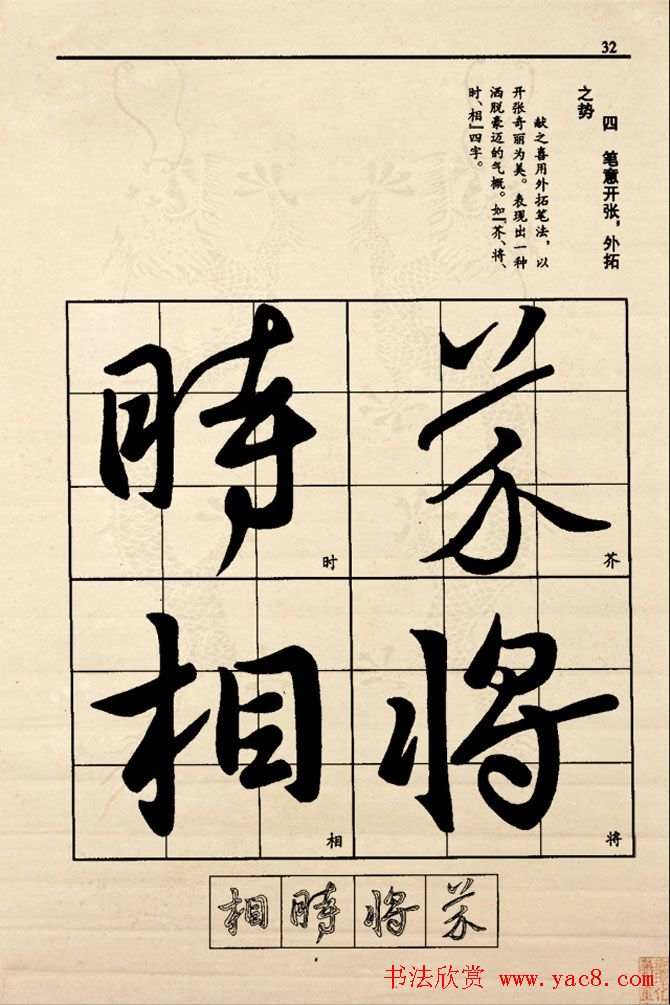 32
四 笔意开张，外拓
之势
献之喜用外拓笔法，以
开张奇丽为美。表现出一种
洒脱豪迈的气概。如『芥、将、
时、相』四字。
芥
芥
将
将
時
时
相
相
相 時 将 芥
书法欣赏 www.yac8.com